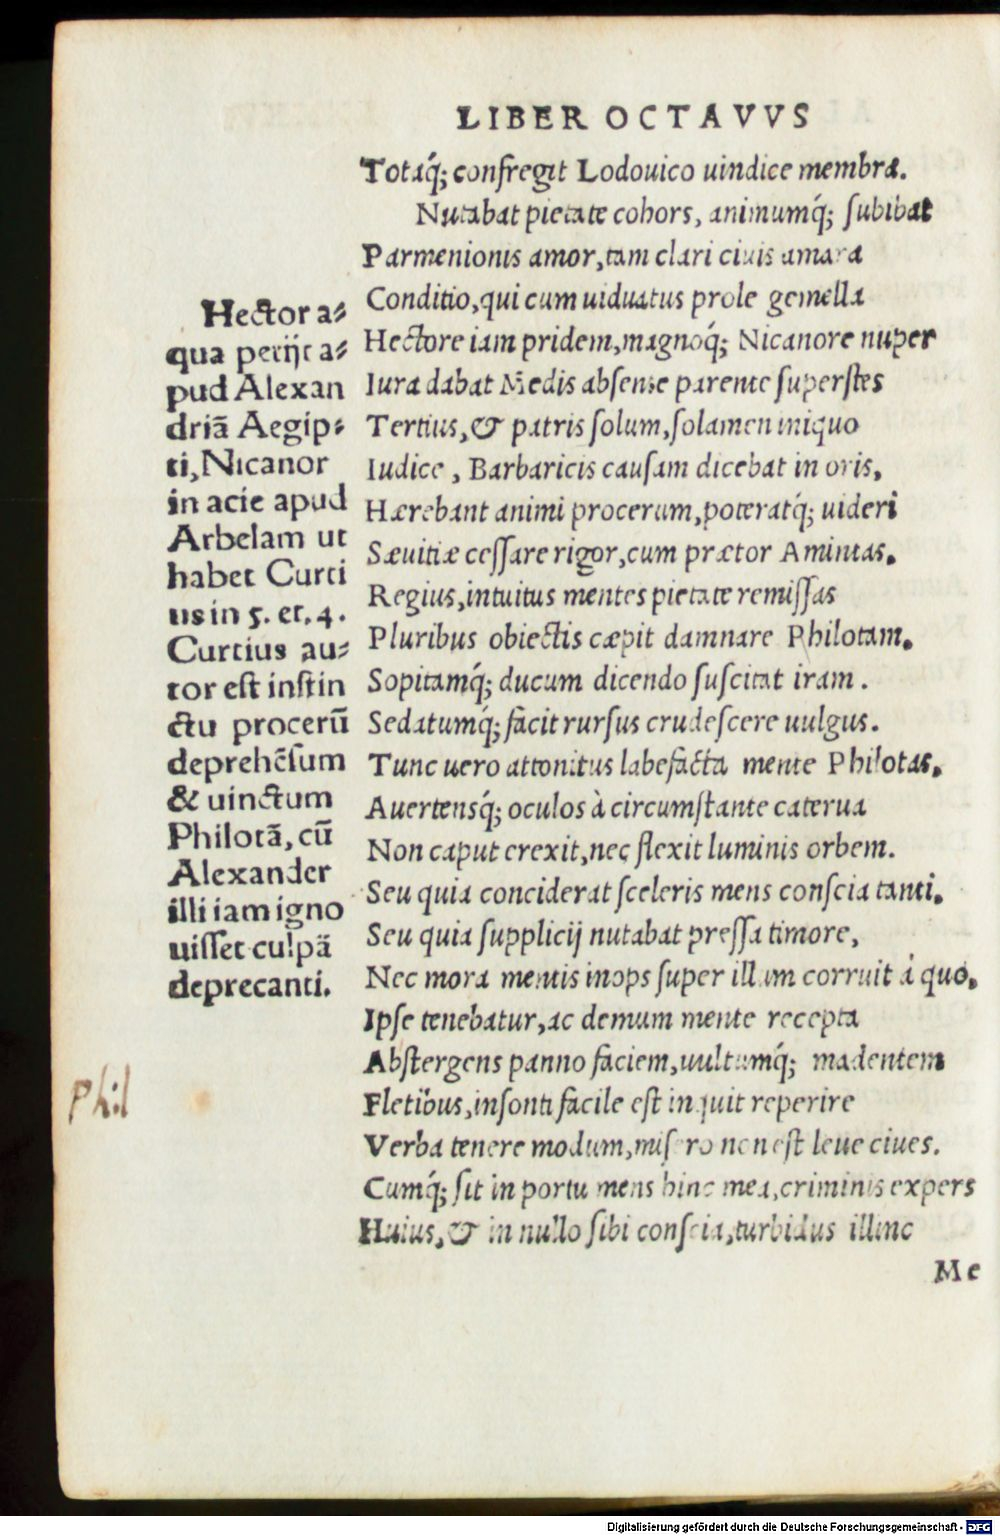 LIBER OCTAVVS
Totaq́; confregit Lodouico uindice membra.
Nutabat pietate cohors, animumq́; ſubibat
Parmenionis amor, tam clari ciuis amara
Conditio, qui cum uiduatus prole gemella
Hectore iam pridem, magnoq́; Nicanore nuper
Iura dabat Medis abſente parente ſuperſtes
Tertius, & patris ſolum, ſolamen iniquo
Iudice, Barbaricis cauſam dicebat in oris,
Hærebant animi procerum, poteratq́; uideri
Sæuitiæ ceſſare rigor, cum prætor Amintas.
Regius, intuitus mentes pietate remiſſas
Pluribus obiectis cæpit damnare Philotam.
Sopitamq́; ducum dicendo ſuſcitat iram.
Sedatumq́; facit rurſus crudeſcere uulgus.
Tunc uero attonitus labefacta mente Philotas.
Auertensq́; oculos à circumſtante caterua
Non caput erexit, nec flexit luminis orbem.
Seu quia conciderat ſceleris mens conſcia tanti.
Seu quia ſupplicij nutabat preſſa timore,
Nec mora mentis inops ſuper illum corruit à quo.
Ipſe tenebatur, ac demum mente recepta
Abſtergens panno faciem, uultumq́; madentem
Fletibus, inſonti facile eſt inquit reperire
Verba tenere modum, miſero non eſt leue ciues.
Cumq́; ſit in portu mens hinc mea, criminis expers
Huius, & in nullo ſibi conſcia, turbidus illinc
Me
Hector a⸗
qua perijt a⸗
pud Alexan
driã Aegip⸗
ti, Nicanor
in acie apud
Arbelam ut
habet Curti
us in 5. et. 4.
Curtius au⸗
tor eſt inſtin
ctu procerũ
deprehẽſum
& uinctum
Philotã, cũ
Alexander
illi iam igno
uiſſet culpã
deprecanti.
Phil
Digitalisierung gefördert durch die Deutsche Forschungsgemeinschaft - DFG